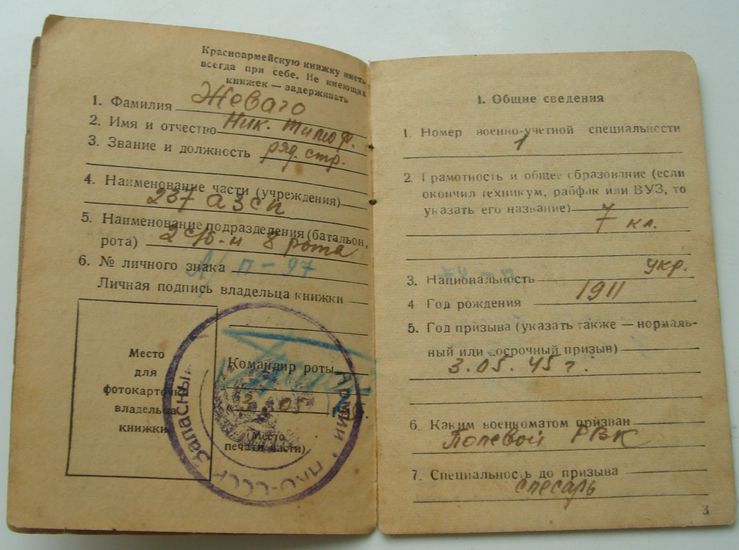 Красноармейскую книжку иметь
всегда при себе. Не имеющих
книжек — задерживать
1. Фамилия Жеваго
2. Имя и отчество Ник. Тимоф.
3. Звание и должность ряд. стр.
4. Наименование части (учреждения)
237 АЗСП
5. Наименование подразделения (батальон,
рота) 2 с/б-н 8 рота
6. № личного знака П-97
Личная подпись владельца книжки
Место
для
фотокарточки
владельца
книжки
Командир роты
05
Место
печати части)
НКО-СССР Запасный
Армии
1. Общие сведения
1. Номер военно-учетной специальности
1
2. Грамотность и общее образование (если
окончил техникум, рабфак или ВУЗ, то
указать его название)
7 кл.
3. Национальность укр.
4 Год рождения 1911
5. Год призыва (указать также — нормаль-
ный или досрочный призыв)
3.05.45 г.
6. Каким военкоматом призван
Полевой РВК
7. Специальность до призыва
слесарь
3